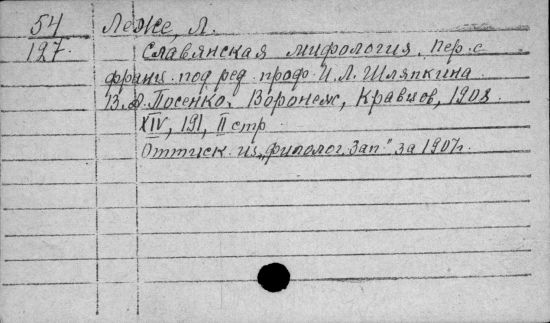 54 Леже, Л.
127. Славянская мифология. Пер. с
франц. под ред. проф. И. Л. Шляпкина
В. А. Пасенко. Воронеж, Кравцов, 1908.
XIV, 191, II стр.
Оттиск из „Филолог. Зап." за 1907 г.